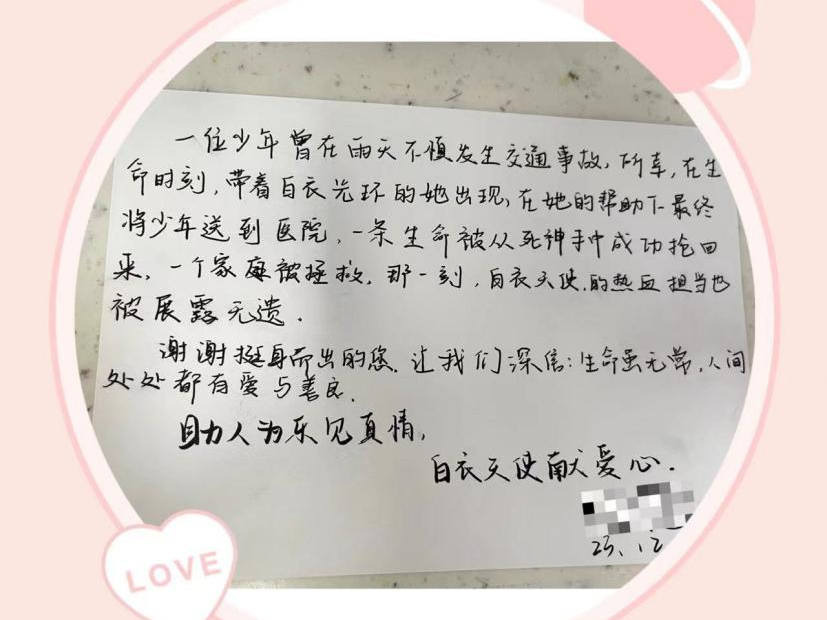 一位少年曾在雨天不慎发生交通事故,所幸,在生
命时刻,带着白衣光环的她出现,在她的帮助下最终
将少年送到医院,一条生命被从死神手中成功抢回
来,一个家庭被拯救。那一刻,白衣天使的热血担当也
被展露无遗.
谢谢挺身而出的您.让我们深信:生命虽无常,人间
处处都有爱与善良.
助人为乐见真情,
白衣天使献爱心.
25.12
LOVE